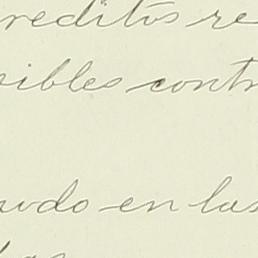 reditos re
ibles contr
udo en las